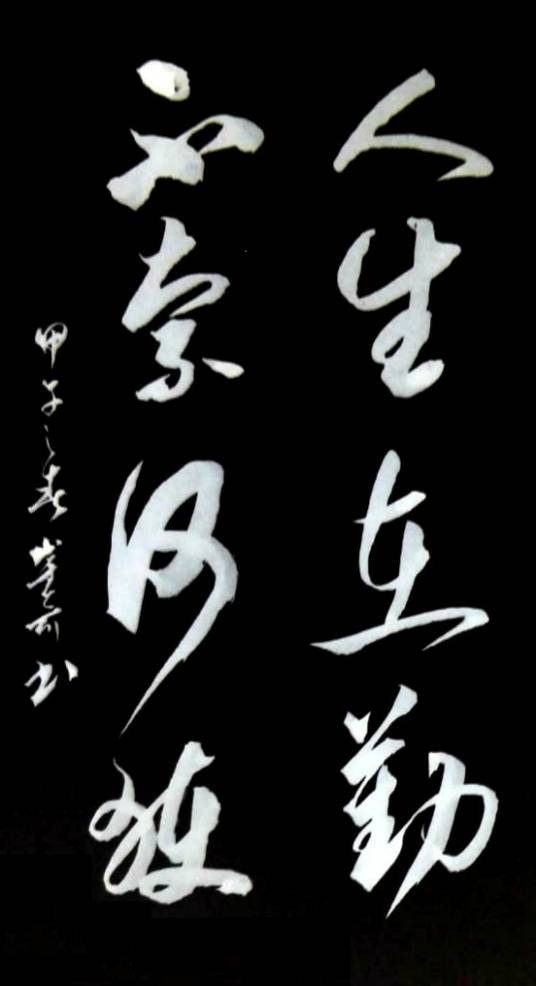 人生在勤
不索何獲
甲子之春 書